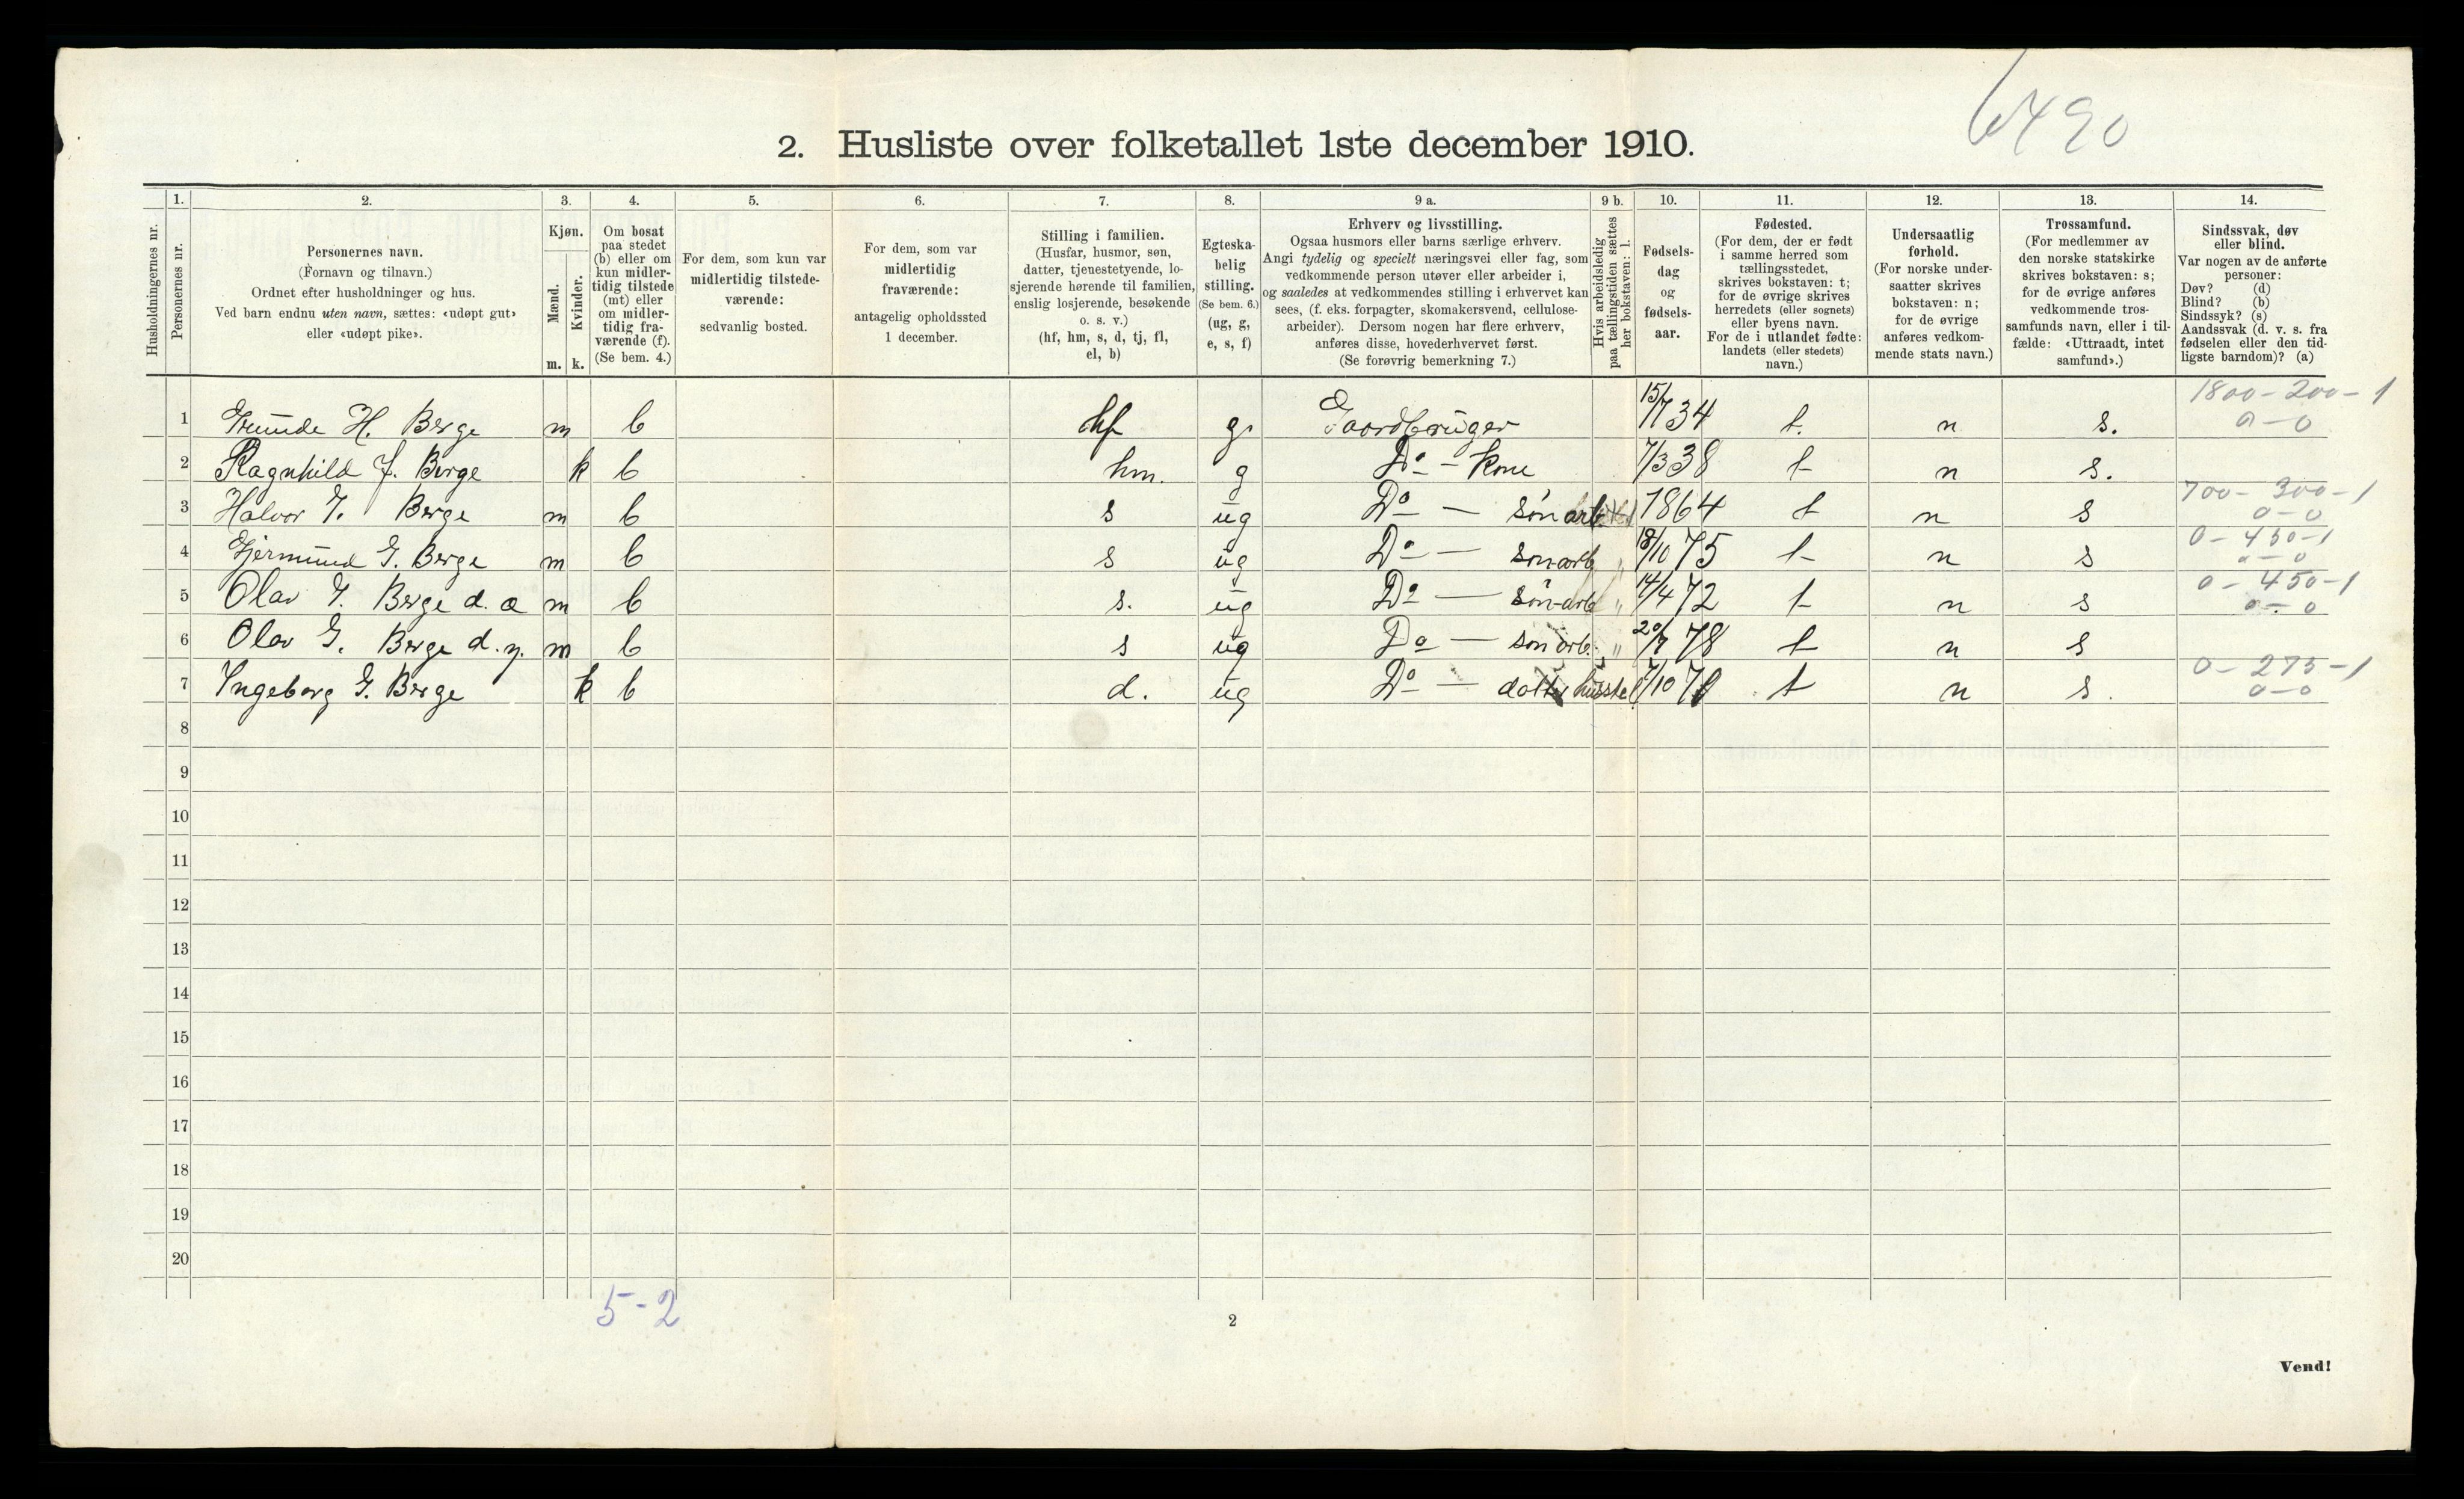 6490
2. Husliste over folketallet 1ste december 1910.
Husholdningernes nr.
1.
Personernes nr.
2.
Personernes navn.
(Fornavn og tilnavn.)
Ordnet efter husholdninger og hus.
Ved barn endnu uten navn, sættes: «udøpt gut»
eller «udøpt pike».
3.
Kjøn.
Mænd.
Kvinder.
m. k.
4.
Om bosat
paa stedet
(b) eller om
kun midler-
tidig tilstede
(mt) eller
om midler-
tidig fra-
værende (f).
(Se bem. 4.)
5.
For dem, som kun var
midlertidig tilstede-
værende:
sedvanlig bosted.
6.
For dem, som var
midlertidig
fraværende:
antagelig opholdssted
1 december.
7.
Stilling i familien.
(Husfar, husmor, søn,
datter, tjenestetyende, lo-
sjerende hørende til familien,
enslig losjerende, besøkende
o. s. v.)
(hf, hm, s, d, tj, fl,
el, b)
8.
Egteska-
belig
stilling.
(Se bem. 6.)
(ug, g,
e, s, f)
9 a.
Erhverv og livsstilling.
Ogsaa husmors eller barns særlige erhverv.
Angi tydelig og specielt næringsvei eller fag, som
vedkommende person utøver eller arbeider i,
og saaledes at vedkommendes stilling i erhvervet kan
sees, (f. eks. forpagter, skomakersvend, cellulose-
arbeider). Dersom nogen har flere erhverv,
anføres disse, hovederhvervet først.
(Se forøvrig bemerkning 7.)
9 b.
Hvis arbeidsledig
paa tællingstiden sættes
her bokstaven: l.
10.
Fødsels-
dag
og
fødsels-
aar.
11.
Fødested.
(For dem, der er født
i samme herred som
tællingsstedet,
skrives bokstaven: t;
for de øvrige skrives
herredets (eller sognets)
eller byens navn.
For de i utlandet fødte:
landets (eller stedets)
navn.)
12.
Undersaatlig
forhold.
(For norske under-
saatter skrives
bokstaven: n;
for de øvrige
anføres vedkom-
mende stats navn.)
13.
Trossamfund.
(For medlemmer av
den norske statskirke
skrives bokstaven: s;
for de øvrige anføres
vedkommende tros-
samfunds navn, eller i til-
fælde: «Uttraadt, intet
samfund».)
14.
Sindssvak, døv
eller blind.
Var nogen av de anførte
personer:
Døv? (d)
Blind? (b)
Sindssyk? (s)
Aandssvak (d. v. s. fra
fødselen eller den tid-
ligste barndom)? (a)
1 H. Berge m b hf g. Gaardbruger 15/7 34 t. n s. 1800-200-1 0-0
2 Ragnhild J. Berge k b hm. g Do - kone 7/3 38 t n s.
3 Halvor G. Berge m b s ug Do - søn arb. 1864 t n s 700-300-1 0-0
4 Gjermund G. Berge m b s ug Do - søn arb " 18/10 75 t n s 0-450-1 0-0
5 Olav G. Berge d. æ m b s. ug Do - søn arb " 14/4 72 t n s 0-450-1 0-0
6 Olav G. Berge d. y. m b s ug Do - søn arb. " 20/7 78 t n s
7 Ingeborg G. Berge k b d. ug Do - datter husstel 7/10 t n s. 0-275-1 0-0
8
9
10
11
12
13
14
15
16
17
18
19
20
5-2
2
Vend!